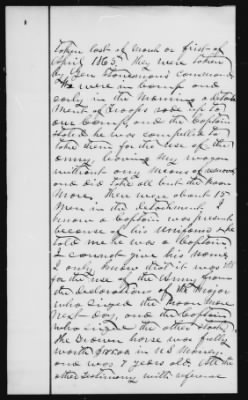 taken last of March or first of
April 1865. They were taken
by Gen Stoneman's command
We were in camp and
early in the morning a detach
ment of troops rode up to
our camp, and the Captain
stated he was compelled to
take them for the use of the
army, leaving my wagon
without any means of
and did take all but the roan
mare. There were about 15
men in the detachment. I
know a Captain was present
because of his uniform & he
told me he was a Captain
I cannot give his name
I only know that it was
for the use of the army from
the declarations of the Major
who seized the roan mare
next day, and the Captain
who seized the other stock.
The brown horse was fully
worth in US Money
and was 7 years old. Like the
other testimony with reference